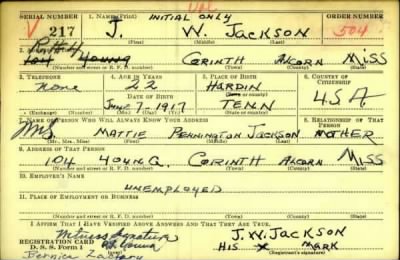 SERIAL NUMBER
1. NAME (Print)
INITIAL ONLY
ORDER NUMBER
V 217
J. W. JACKSON
504
(First) (Middle) (Last)
104 YOUNG CORINTH ALCORN MISS
(Number and street or R. F. D. number) (Town) (County) (State)
3. TELEPHONE
4. AGE IN YEARS
5. PLACE OF BIRTH
6. COUNTRY OF CITIZENSHIP
None
22
HARDIN
DATE OF BIRTH
(Town or county)
U.S.A
7-1917
TENN
(Exchange) (Number)
(Mo.) (Day) (Yr.)
(State or country)
7. NAME OF PERSON WHO WILL ALWAYS KNOW YOUR ADDRESS
8. RELATIONSHIP OF THAT PERSON
MRS MATTIE PENNINGTON JACKSON MOTHER
(Mr., Mrs., Miss) (First) (Middle) (Last)
9. ADDRESS OF THAT PERSON
104 YOUNG. CORINTH ALCORN MISS
(Number and street or R. F. D. number) (Town) (County) (State)
10. EMPLOYER'S NAME
UNEMPLOYED
11. PLACE OF EMPLOYMENT OR BUSINESS
(Number and street or R. F. D. number) (Town) (County) (State)
I AFFIRM THAT I HAVE VERIFIED ABOVE ANSWERS AND THAT THEY ARE TRUE.
REGISTRATION CARD
D. S. S. Form 1
Witness Signature
Bernice
J. W. JACKSON
HIS X MARK
(Registrant's signature)